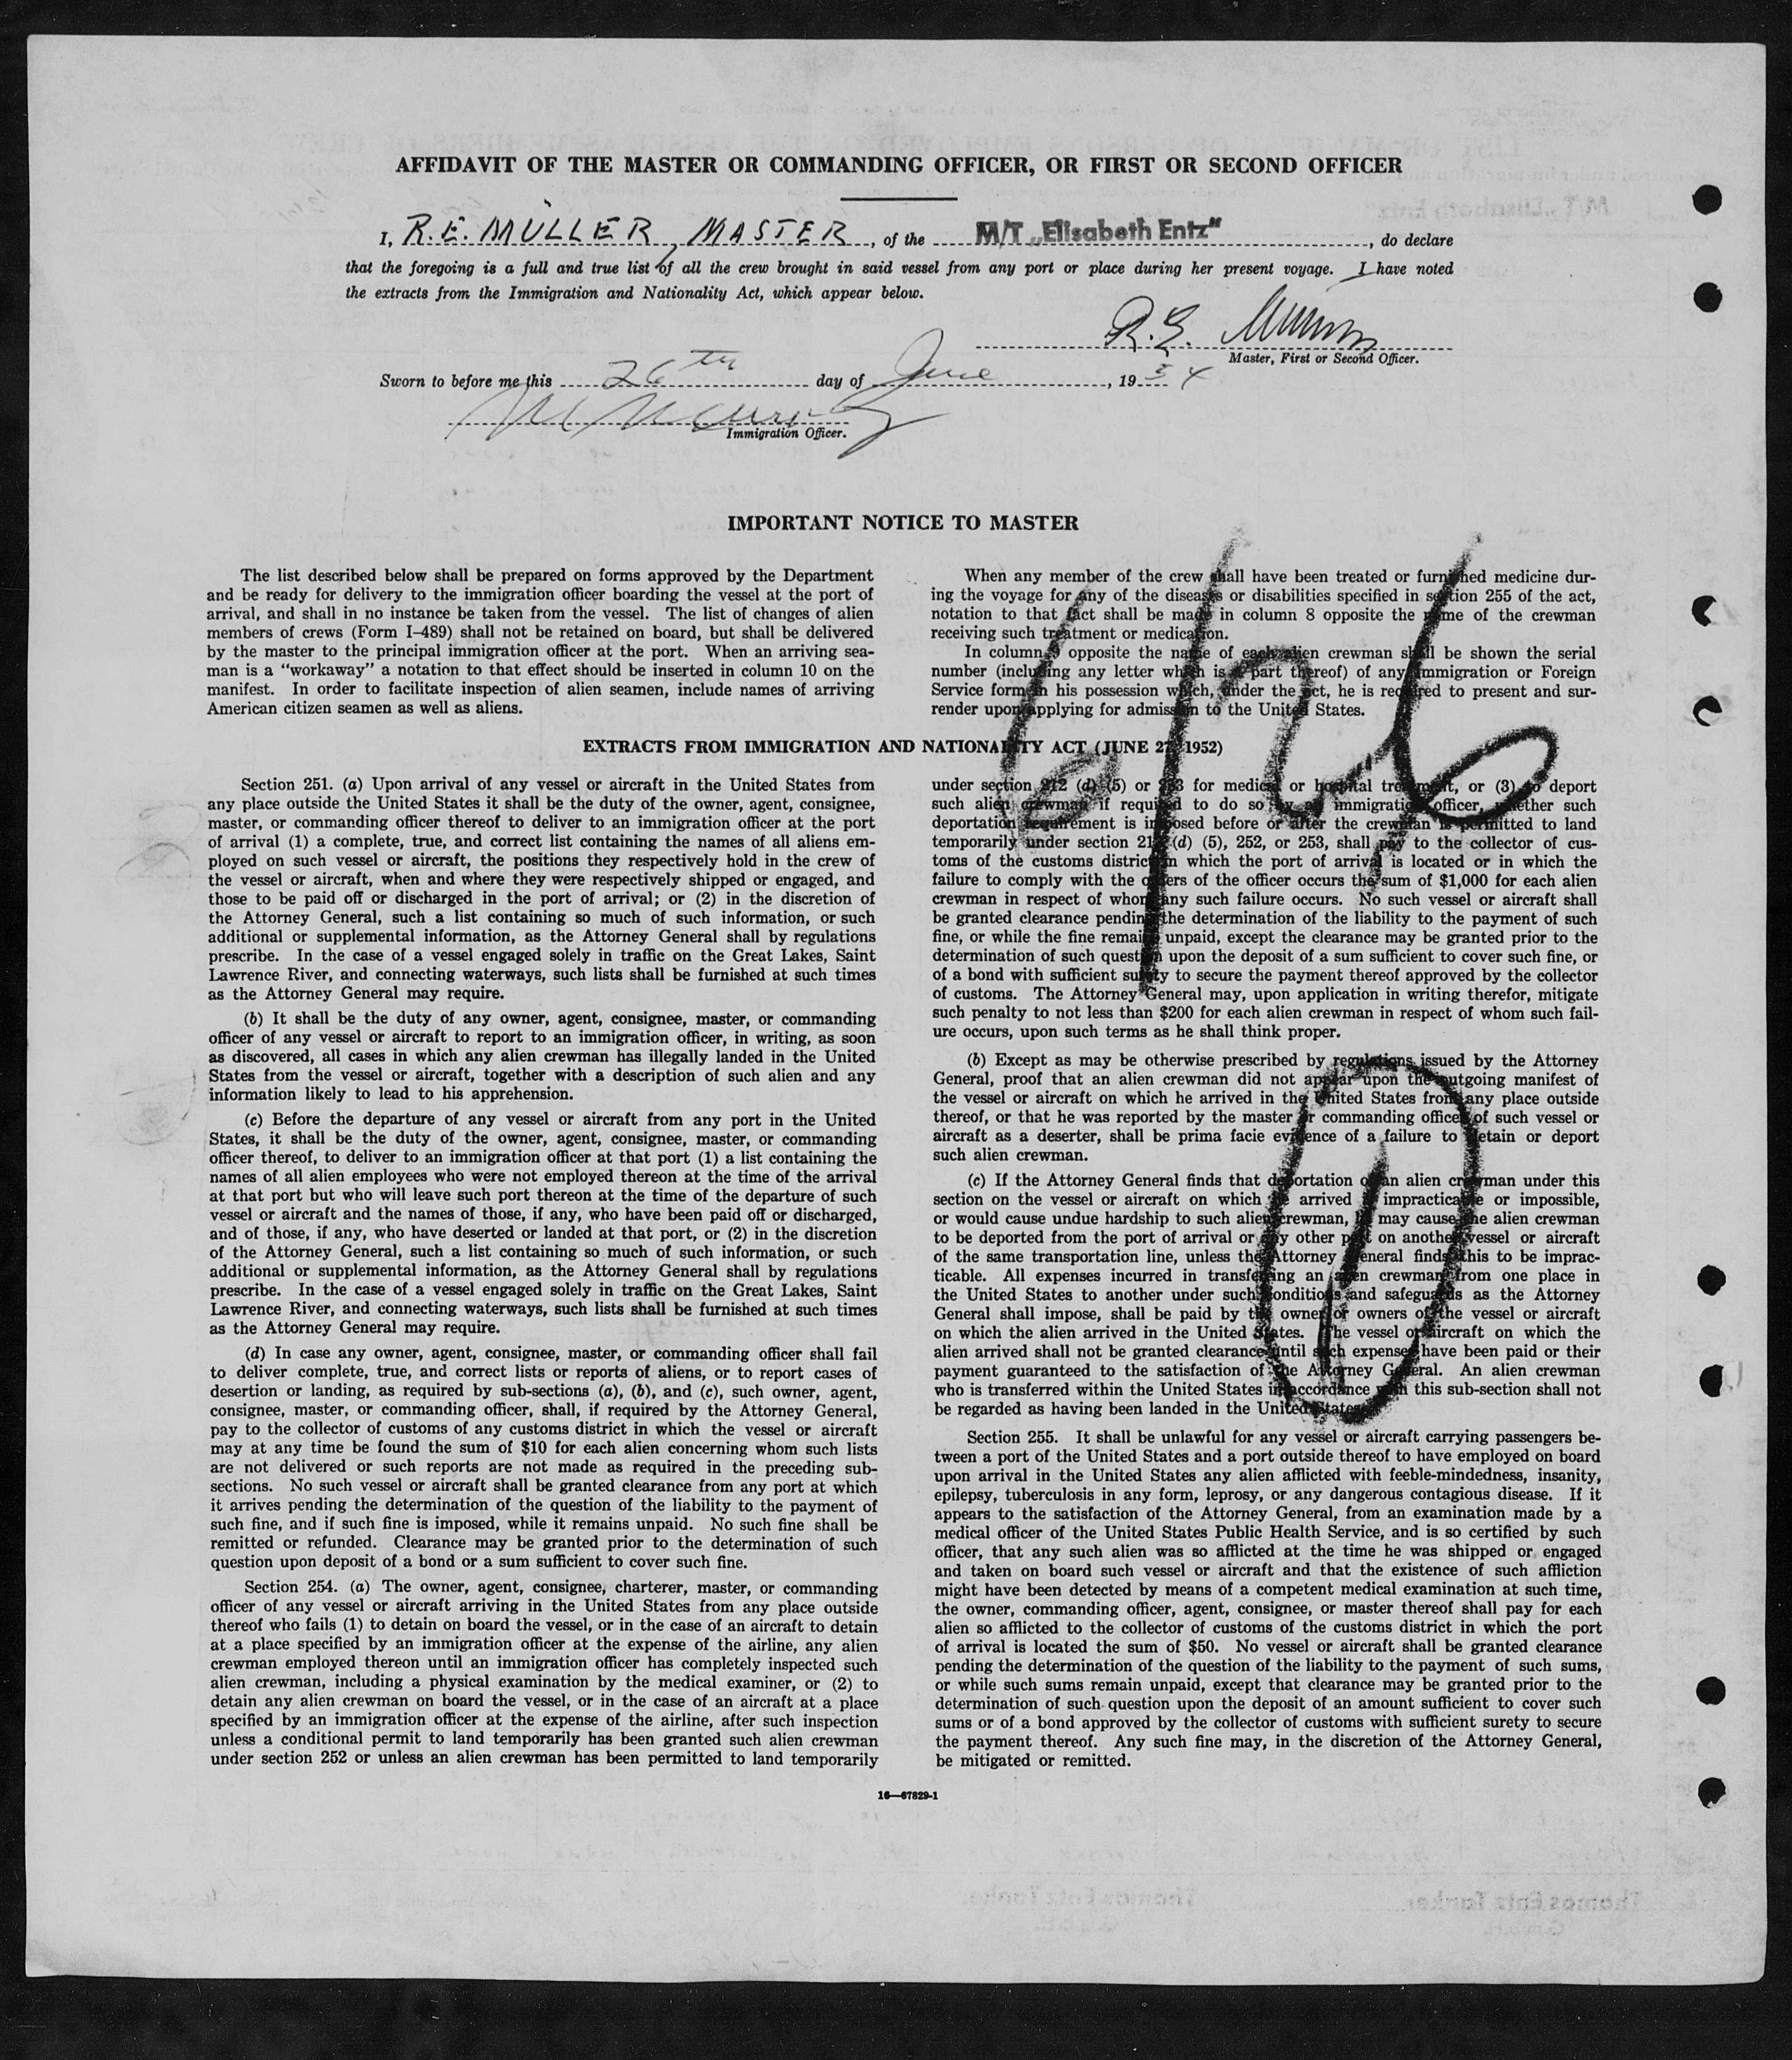 AFFIDAVIT OF THE MASTER OR COMMANDING OFFICER, OR FIRST OR SECOND OFFICER
I, R.E. MÜLLER, MASTER, of the M/T „Elisabeth Entz“, do declare
that the foregoing is a full and true list of all the crew brought in said vessel from any port or place during her present voyage. I have noted
the extracts from the Immigration and Nationality Act, which appear below.
R.E.
Master, First or Second Officer.
Sworn to before me this 26th day of June, 1954
Immigration Officer.
IMPORTANT NOTICE TO MASTER
The list described below shall be prepared on forms approved by the Department
and be ready for delivery to the immigration officer boarding the vessel at the port of
arrival, and shall in no instance be taken from the vessel. The list of changes of alien
members of crews (Form I–489) shall not be retained on board, but shall be delivered
by the master to the principal immigration officer at the port. When an arriving sea-
man is a “workaway” a notation to that effect should be inserted in column 10 on the
manifest. In order to facilitate inspection of alien seamen, include names of arriving
American citizen seamen as well as aliens.
When any member of the crew shall have been treated or furnished medicine dur-
ing the voyage for any of the diseases or disabilities specified in section 255 of the act,
notation to that fact shall be made in column 8 opposite the name of the crewman
receiving such treatment or medication.
In column 9 opposite the name of each alien crewman shall be shown the serial
number (including any letter which is a part thereof) of any immigration or Foreign
Service form in his possession which, under the act, he is required to present and sur-
render upon applying for admission to the United States.
6/26
EXTRACTS FROM IMMIGRATION AND NATIONALITY ACT (JUNE 27, 1952)
Section 251. (a) Upon arrival of any vessel or aircraft in the United States from
any place outside the United States it shall be the duty of the owner, agent, consignee,
master, or commanding officer thereof to deliver to an immigration officer at the port
of arrival (1) a complete, true, and correct list containing the names of all aliens em-
ployed on such vessel or aircraft, the positions they respectively hold in the crew of
the vessel or aircraft, when and where they were respectively shipped or engaged, and
those to be paid off or discharged in the port of arrival; or (2) in the discretion of
the Attorney General, such a list containing so much of such information, or such
additional or supplemental information, as the Attorney General shall by regulations
prescribe. In the case of a vessel engaged solely in traffic on the Great Lakes, Saint
Lawrence River, and connecting waterways, such lists shall be furnished at such times
as the Attorney General may require.
(b) It shall be the duty of any owner, agent, consignee, master, or commanding
officer of any vessel or aircraft to report to an immigration officer, in writing, as soon
as discovered, all cases in which any alien crewman has illegally landed in the United
States from the vessel or aircraft, together with a description of such alien and any
information likely to lead to his apprehension.
(c) Before the departure of any vessel or aircraft from any port in the United
States, it shall be the duty of the owner, agent, consignee, master, or commanding
officer thereof, to deliver to an immigration officer at that port (1) a list containing the
names of all alien employees who were not employed thereon at the time of the arrival
at that port but who will leave such port thereon at the time of the departure of such
vessel or aircraft and the names of those, if any, who have been paid off or discharged,
and of those, if any, who have deserted or landed at that port, or (2) in the discretion
of the Attorney General, such a list containing so much of such information, or such
additional or supplemental information, as the Attorney General shall by regulations
prescribe. In the case of a vessel engaged solely in traffic on the Great Lakes, Saint
Lawrence River, and connecting waterways, such lists shall be furnished at such times
as the Attorney General may require.
(d) In case any owner, agent, consignee, master, or commanding officer shall fail
to deliver complete, true, and correct lists or reports of aliens, or to report cases of
desertion or landing, as required by sub-sections (a), (b), and (c), such owner, agent,
consignee, master, or commanding officer, shall, if required by the Attorney General,
pay to the collector of customs of any customs district in which the vessel or aircraft
may at any time be found the sum of $10 for each alien concerning whom such lists
are not delivered or such reports are not made as required in the preceding sub-
sections. No such vessel or aircraft shall be granted clearance from any port at which
it arrives pending the determination of the question of the liability to the payment of
such fine, and if such fine is imposed, while it remains unpaid. No such fine shall be
remitted or refunded. Clearance may be granted prior to the determination of such
question upon deposit of a bond or a sum sufficient to cover such fine.
Section 254. (a) The owner, agent, consignee, charterer, master, or commanding
officer of any vessel or aircraft arriving in the United States from any place outside
thereof who fails (1) to detain on board the vessel, or in the case of an aircraft to detain
at a place specified by an immigration officer at the expense of the airline, any alien
crewman employed thereon until an immigration officer has completely inspected such
alien crewman, including a physical examination by the medical examiner, or (2) to
detain any alien crewman on board the vessel, or in the case of an aircraft at a place
specified by an immigration officer at the expense of the airline, after such inspection
unless a conditional permit to land temporarily has been granted such alien crewman
under section 252 or unless an alien crewman has been permitted to land temporarily
under section 212 (d) (5) or 253 for medical or hospital treatment, or (3) to deport
such alien crewman if required to do so by an immigration officer, whether such
deportation requirement is imposed before or after the crewman is permitted to land
temporarily under section 212 (d) (5), 252, or 253, shall pay to the collector of cus-
toms of the customs district in which the port of arrival is located or in which the
failure to comply with the orders of the officer occurs the sum of $1,000 for each alien
crewman in respect of whom any such failure occurs. No such vessel or aircraft shall
be granted clearance pending the determination of the liability to the payment of such
fine, or while the fine remains unpaid, except the clearance may be granted prior to the
determination of such question upon the deposit of a sum sufficient to cover such fine, or
of a bond with sufficient surety to secure the payment thereof approved by the collector
of customs. The Attorney General may, upon application in writing therefor, mitigate
such penalty to not less than $200 for each alien crewman in respect of whom such fail-
ure occurs, upon such terms as he shall think proper.
(b) Except as may be otherwise prescribed by regulations issued by the Attorney
General, proof that an alien crewman did not appear upon the outgoing manifest of
the vessel or aircraft on which he arrived in the United States from any place outside
thereof, or that he was reported by the master or commanding officer of such vessel or
aircraft as a deserter, shall be prima facie evidence of a failure to detain or deport
such alien crewman.
(c) If the Attorney General finds that deportation of an alien crewman under this
section on the vessel or aircraft on which he arrived is impracticable or impossible,
or would cause undue hardship to such alien crewman, he may cause the alien crewman
to be deported from the port of arrival or any other port on another vessel or aircraft
of the same transportation line, unless the Attorney General finds this to be imprac-
ticable. All expenses incurred in transferring an alien crewman from one place in
the United States to another under such conditions and safeguards as the Attorney
General shall impose, shall be paid by the owner or owners of the vessel or aircraft
on which the alien arrived in the United States. The vessel or aircraft on which the
alien arrived shall not be granted clearance until such expenses have been paid or their
payment guaranteed to the satisfaction of the Attorney General. An alien crewman
who is transferred within the United States in accordance with this sub-section shall not
be regarded as having been landed in the United States.
1
Section 255. It shall be unlawful for any vessel or aircraft carrying passengers be-
tween a port of the United States and a port outside thereof to have employed on board
upon arrival in the United States any alien afflicted with feeble-mindedness, insanity,
epilepsy, tuberculosis in any form, leprosy, or any dangerous contagious disease. If it
appears to the satisfaction of the Attorney General, from an examination made by a
medical officer of the United States Public Health Service, and is so certified by such
officer, that any such alien was so afflicted at the time he was shipped or engaged
and taken on board such vessel or aircraft and that the existence of such affliction
might have been detected by means of a competent medical examination at such time,
the owner, commanding officer, agent, consignee, or master thereof shall pay for each
alien so afflicted to the collector of customs of the customs district in which the port
of arrival is located the sum of $50. No vessel or aircraft shall be granted clearance
pending the determination of the question of the liability to the payment of such sums,
or while such sums remain unpaid, except that clearance may be granted prior to the
determination of such question upon the deposit of an amount sufficient to cover such
sums or of a bond approved by the collector of customs with sufficient surety to secure
the payment thereof. Any such fine may, in the discretion of the Attorney General,
be mitigated or remitted.
16—67829-1